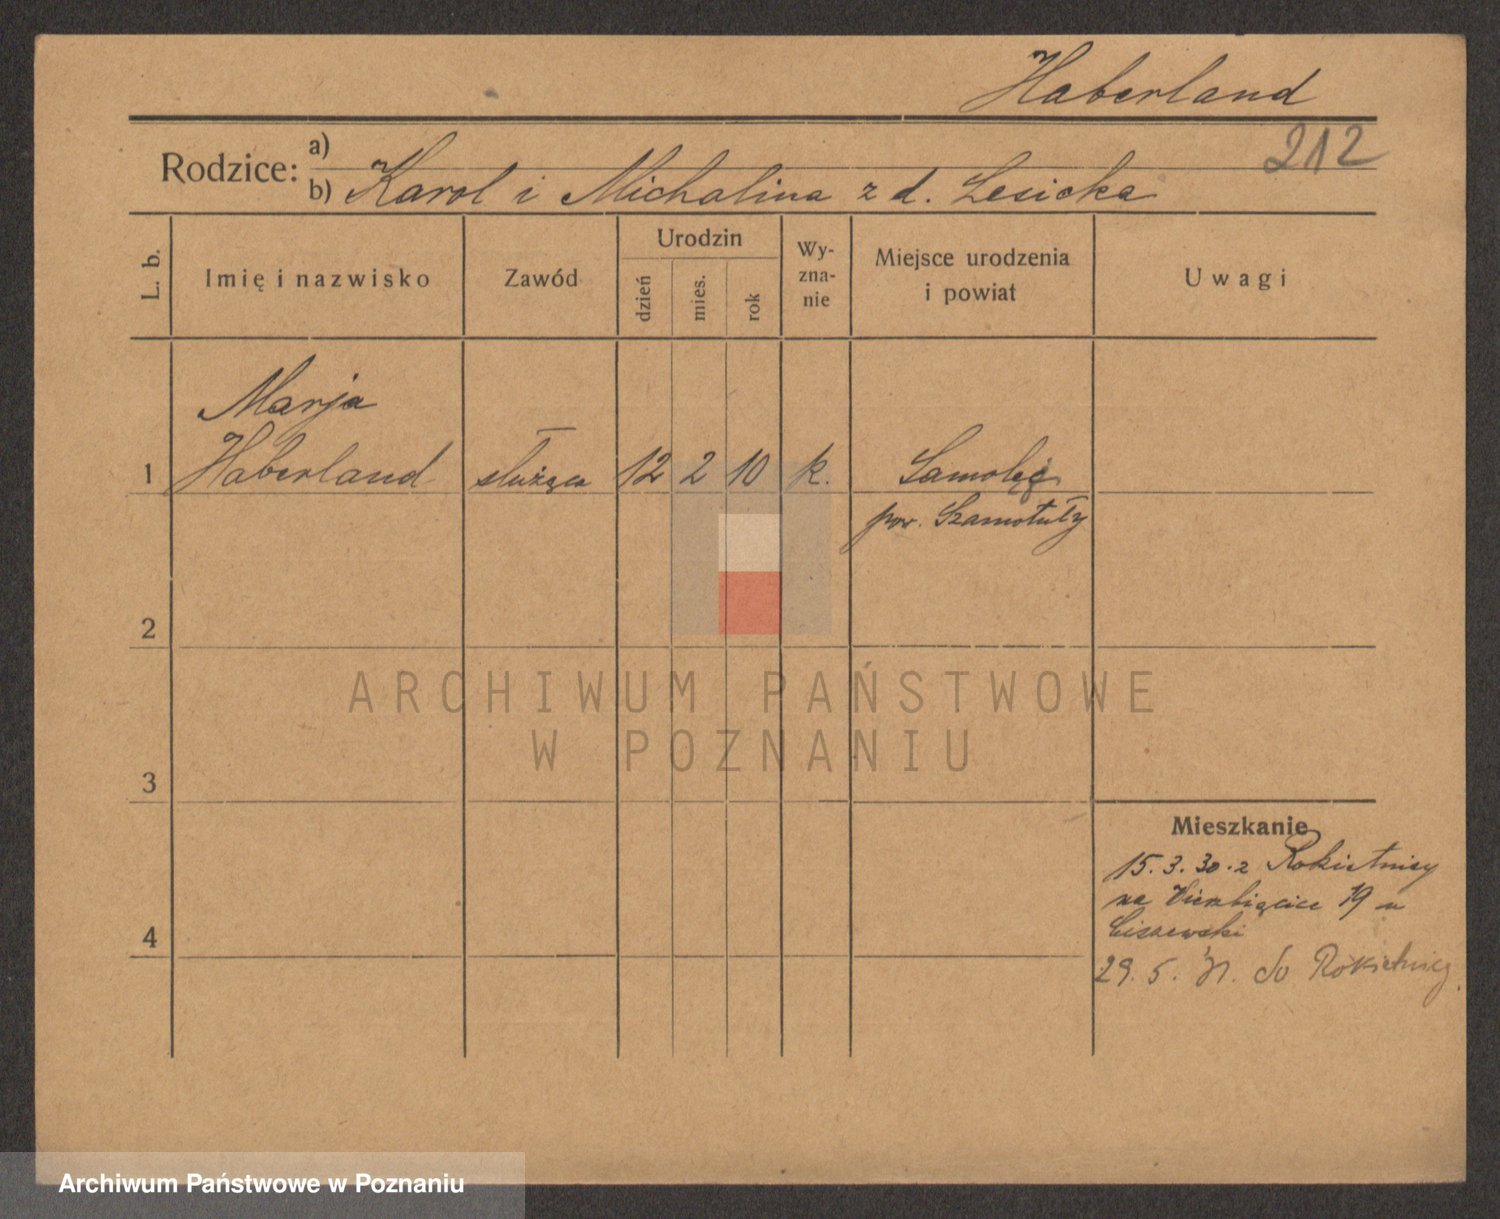 Haberland
212
Rodzice: a)
b) Karol i Michalina z d. Lesicka
L. b.
Imię i nazwisko
Zawód
Urodzin
dzień
mies.
rok
Wy-
zna-
nie
Miejsce urodzenia
i powiat
Uwagi
Marja
1 Haberland służąca 12 2 10 k. Samołęż
pow. Szamotuły
2
3
4
Mieszkanie
15.3.30. z Rokietnicy
na Wierzbięcice 19 u
Ciszewski
29. 5. do Rokietnicy
ARCHIWUM PAŃSTWOWE
W POZNANIU
Archiwum Państwowe w Poznaniu